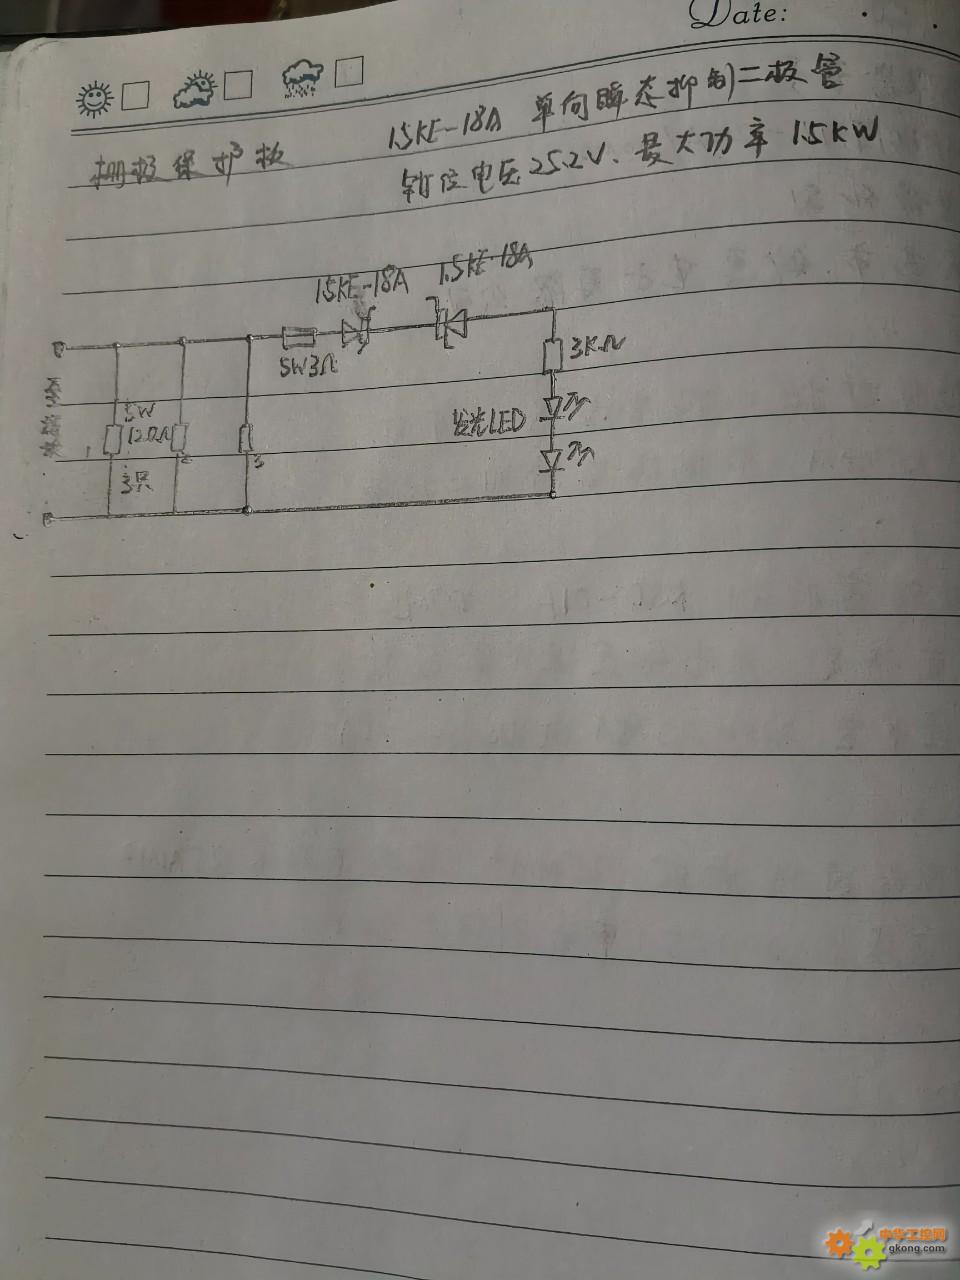 Date:
1.5KE-18A 单向瞬态抑制二极管
栅极保护板
钳位电压25.2V、最大功率1.5KW
1.5KE-18A
1.5KE-18A
5W3Ω
3KΩ
发光LED
5W
120Ω
3只
1
2
3
中华工控网
gkong.com